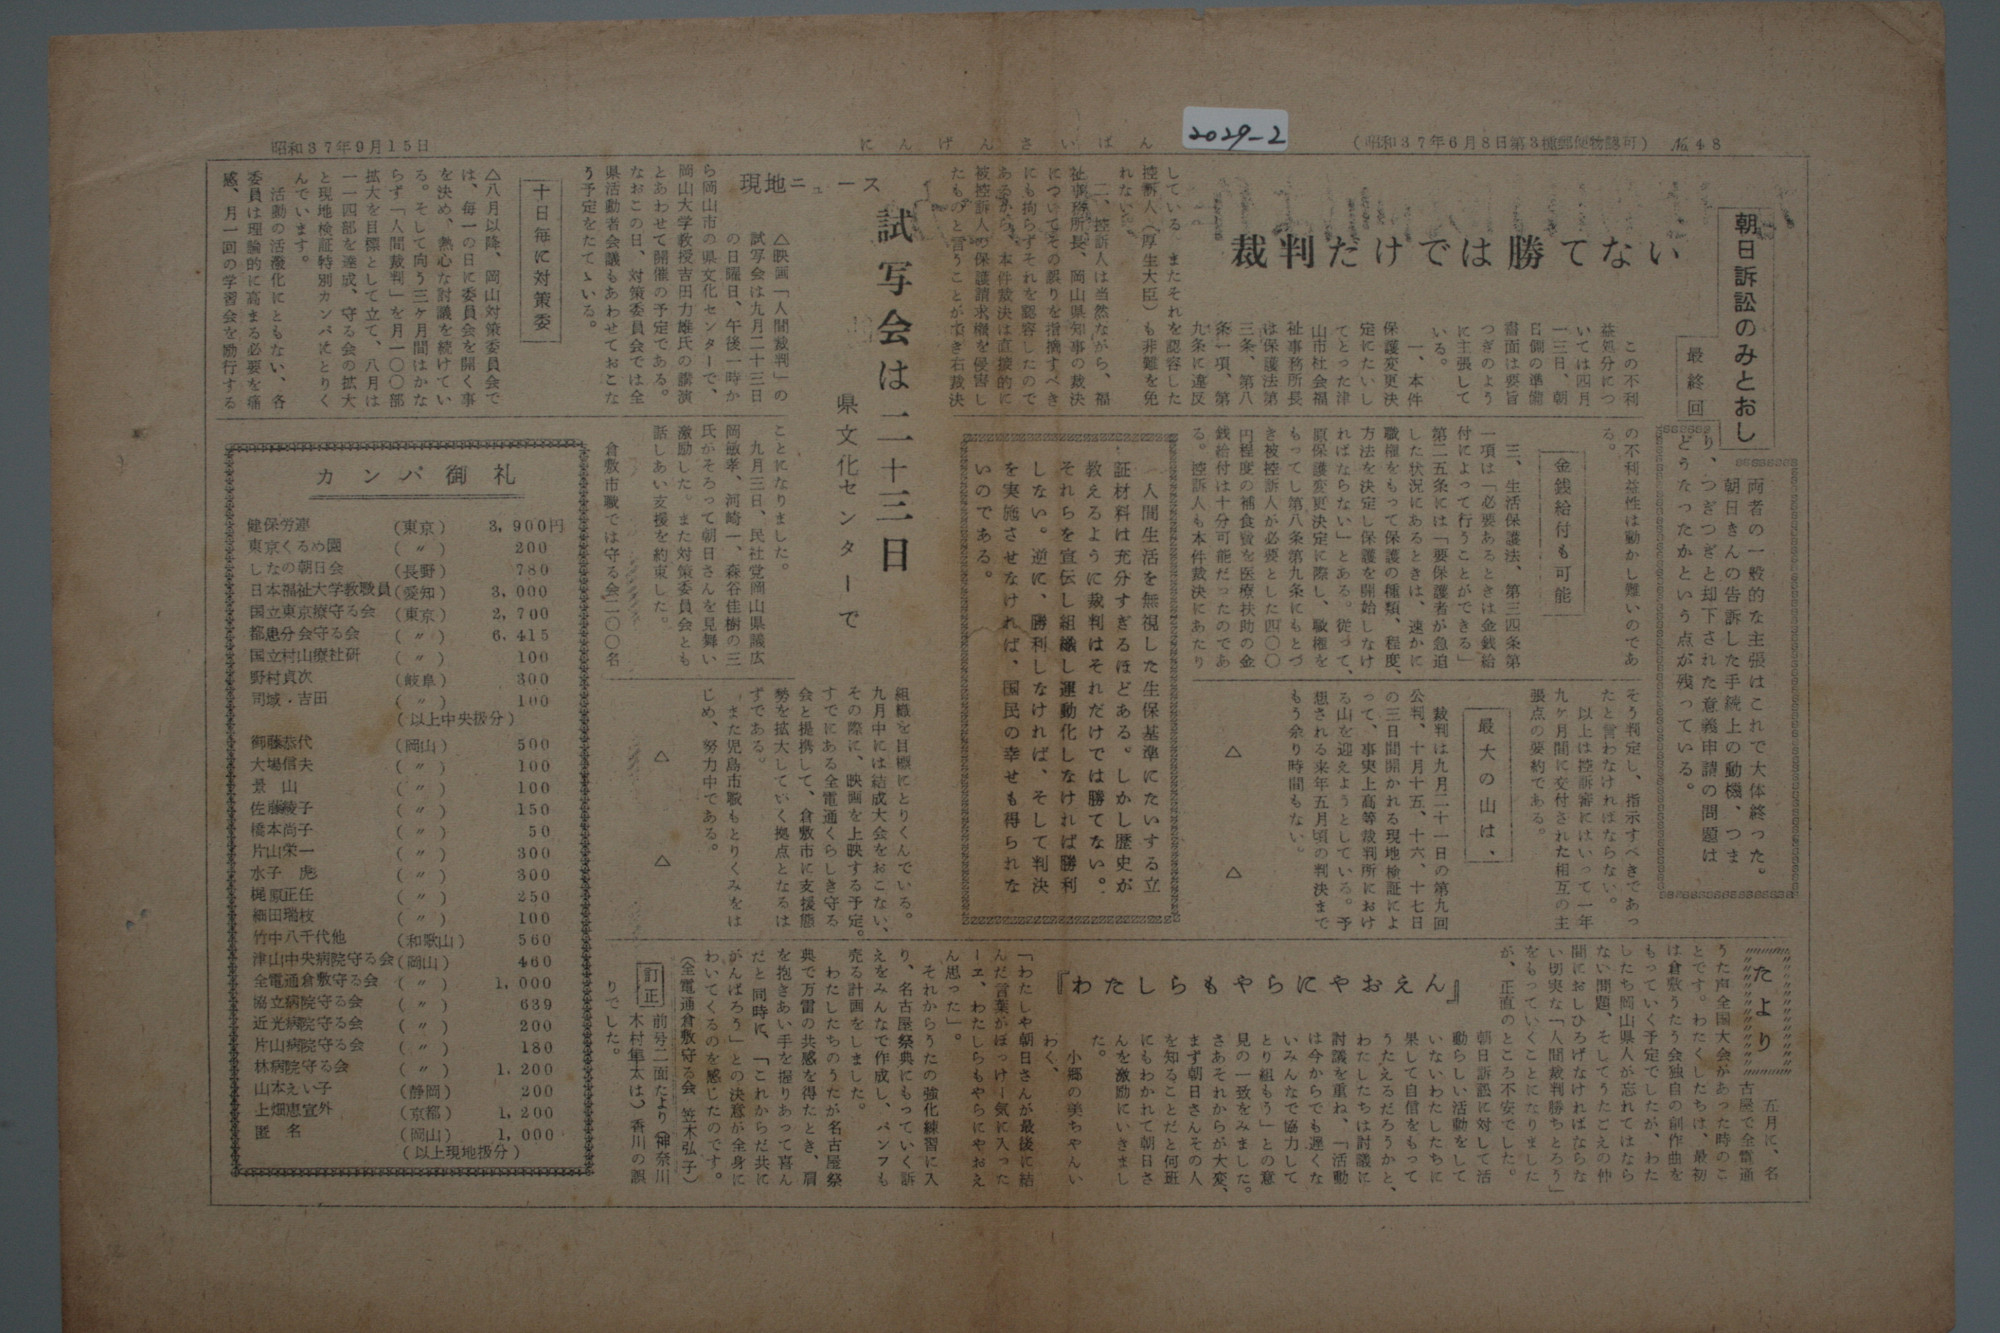 昭和37年9月15日
にんげんさいばん
2029-2
(昭和37年6月8日第3種郵便物認可) №48
朝日訴訟のみとおし
最終回
両者の一般的な主張はこれで大体終った。
朝日さんの告訴した手続上の動機、つま
り、つぎつぎと却下された意義申請の問題は
どうなったかという点が残っている。
裁判だけでは勝てない
この不利
益処分につ
いては四月
一三日、朝
日側の準備
書面は要旨
つぎのよう
に主張して
いる。
一、本件
保護変更決
定にたいし
てとった津
山市社会福
祉事務所長
は保護法第
三条、第八
条一項、第
九条に違反
している。またそれを認容した
控訴人(厚生大臣)も非難を免
れない。
二、控訴人は当然ながら、福
祉事務所長、岡山県知事の裁決
についてその誤りを指摘すべき
にも拘らずそれを認容したので
あるから、本件裁決は直接的に
被控訴人の保護請求権を侵害し
たものと言うことができ右裁決
の不利益性は動かし難いのであ
る。
金銭給付も可能
三、生活保護法、第三四条第
一項は「必要あるときは金銭給
付によって行うことができる」
第二五条には「要保護者が急迫
した状況にあるときは、速かに
職権をもって保護の種類、程度、
方法を決定し保護を開始しなけ
ればならない」とある。従って、
原保護変更決定に際し、職権を
もってし第八条第九条にもとづ
き被控訴人が必要とした四〇〇
円程度の補食費を医療扶助の金
銭給付は十分可能だったのであ
る。控訴人も本件裁決にあたり
そう判定し、指示すべきであっ
たと言わなければならない。
以上は控訴審にはいって一年
九ヶ月間に交付された相互の主
張点の要約である。
最大の山は、
裁判は九月二十一日の第九回
公判、十月十五、十六、十七日
の三日間開かれる現地検証によ
って、事実上高等裁判所におけ
る山を迎えようとしている。予
想される来年五月頃の判決まで
もう余り時間もない。
△ △
人間生活を無視した生保基準にたいする立
証材料は充分すぎるほどある。しかし歴史が
教えるように裁判はそれだけでは勝てない。
それらを宣伝し組織し運動化しなければ勝利
しない。逆に、勝利しなければ、そして判決
を実施させなければ、国民の幸せも得られな
いのである。
現地ニュース
試写会は二十三日
県文化センターで
△映画「人間裁判」の
試写会は九月二十三日
の日曜日、午後一時か
ら岡山市の県文化センターで、
岡山大学教授吉田力雄氏の講演
とあわせて開催の予定である。
なおこの日、対策委員会では全
県活動者会議もあわせておこな
う予定をたてゝいる。
十日毎に対策委
△八月以降、岡山対策委員会で
は、毎一の日に委員会を開く事
を決め、熱心な討議を続けてい
る。そして向う三ケ月間はかな
らず「人間裁判」を月一〇〇部
拡大を目標として立て、八月は
一一四部を達成、守る会の拡大
と現地検証特別カンパにとりく
んでいます。
活動の活溌化にともない、各
委員は理論的に高まる必要を痛
感、月一回の学習会を励行する
ことになりました。
九月三日、民社党岡山県議広
岡敬孝、河崎一、森谷佳樹の三
氏がそろって朝日さんを見舞い
激励した。また対策委員会とも
話しあい支援を約束した。
倉敷市職では守る会二〇〇名
組織を目標にとりくんでいる。
九月中には結成大会をおこない、
その際に、映画を上映する予定。
すでにある全電通くらしき守る
会と提携して、倉敷市に支援態
勢を拡大していく拠点となるは
ずである。
また児島市職もとりくみをは
じめ、努力中である。
△ △
たより
『わたしらもやらにやおえん』
五月に、名
古屋で全電通
うた声全国大会があった時のこ
とです。わたくしたちは、最初
は倉敷うたう会独自の創作曲を
もっていく予定でしたが、わた
したち岡山県人が忘れてはなら
ない問題、そしてうたごえの仲
間におしひろげなければならな
い切実な「人間裁判勝ちとろう」
をもっていくことになりました
が、正直のところ不安でした。
朝日訴訟に対して活
動らしい活動をして
いないわたしたちに
果して自信をもって
うたえるだろうかと、
わたしたちは討議に
討議を重ね、「活動
は今からでも遅くな
いみんなで協力して
とり組もう」との意
見の一致をみました。
さあそれからが大変、
まず朝日さんその人
を知ることだと何班
にもわかれて朝日さ
んを激励にいきまし
た。
小郷の美ちゃんい
わく、
「わたしや朝日さんが最後に結
んだ言葉がほっけー気に入った
ーエ、わたしらもやらにやおえ
ん思った」。
それからうたの強化練習に入
り、名古屋祭典にもっていく訴
えをみんなで作成し、パンフも
売る計画をしました。
わたしたちのうたが名古屋祭
典で万雷の共感を得たとき、肩
を抱きあい手を握りあって喜ん
だと同時に、「これからだ共に
がんばろう」との決意が全身に
わいてくるのを感じたのです。
(全電通倉敷守る会 笠木弘子)
訂正 前号二面たより(神奈川
木村隼太は)香川の誤
りでした。
カンパ御礼
健保労連 (東京) 3,900円
東京くるめ園 (〃) 200
しなの朝日会 (長野) 780
日本福祉大学教職員 (愛知) 3,000
国立東京療守る会 (東京) 2,700
都患分会守る会 (〃) 6,415
国立村山療社研 (〃) 100
野村貞次 (岐阜) 300
司城・吉田 (〃) 100
(以上中央扱分)
御藤恭代 (岡山) 500
大場信夫 (〃) 100
景山 (〃) 100
佐藤綾子 (〃) 150
橋本尚子 (〃) 50
片山栄一 (〃) 300
水子 虎 (〃) 300
梶原正任 (〃) 250
細田瑞枝 (〃) 100
竹中八千代他 (和歌山) 560
津山中央病院守る会 (岡山) 460
全電通倉敷守る会 (〃) 1,000
協立病院守る会 (〃) 639
近光病院守る会 (〃) 200
片山病院守る会 (〃) 180
林病院守る会 (〃) 1,200
山本えい子 (静岡) 200
上畑恵宣外 (京都) 1,200
匿名 (岡山) 1,000
(以上現地扱分)